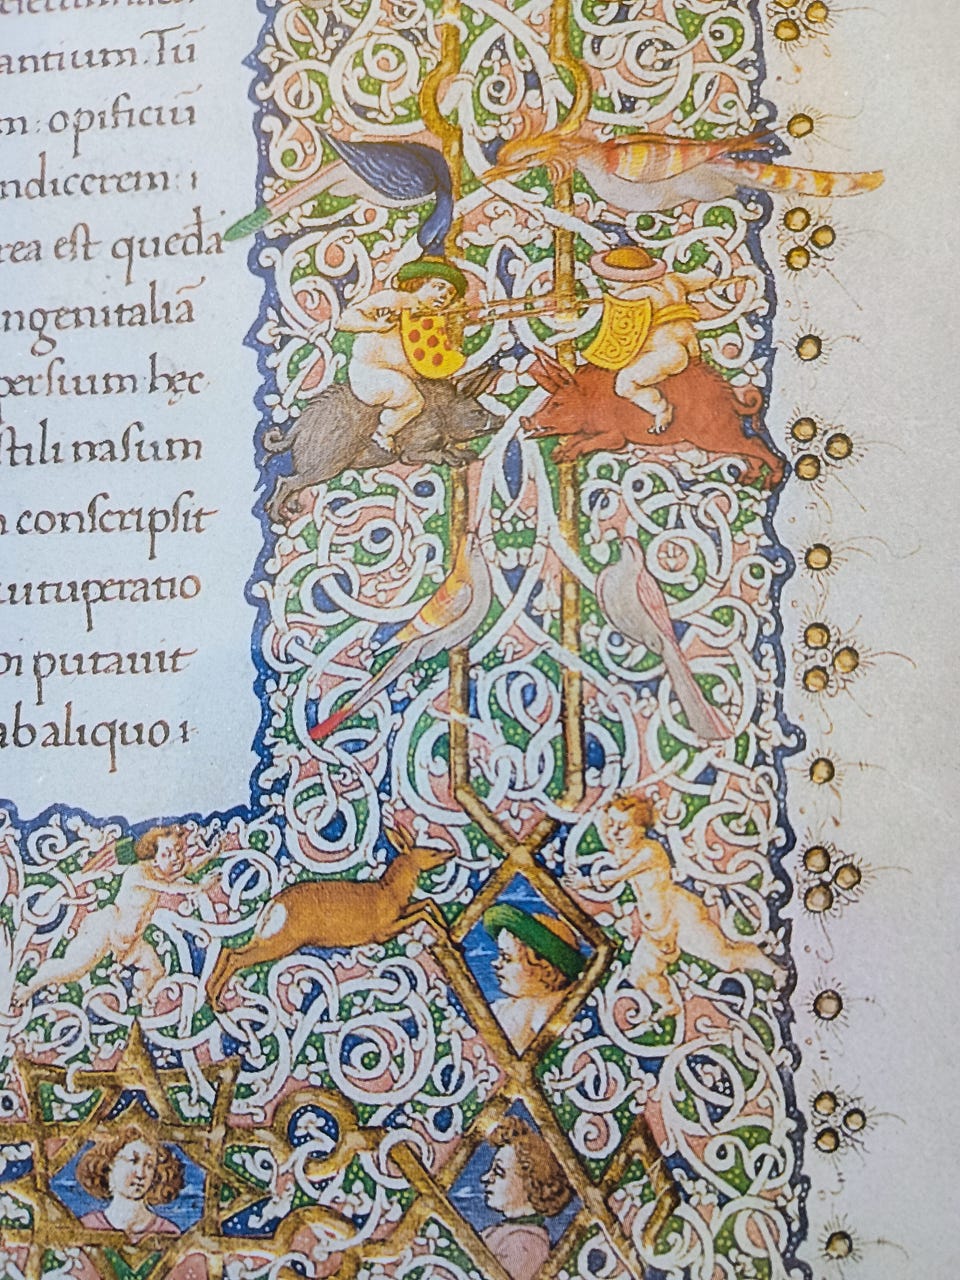 antium. Tū
m: opificiū
ndicerem: i
rea est quedā
ngenitaliā
persium hęc
stili nasum
n conscripsit
uituperatio
bi putauit
ab aliquo i